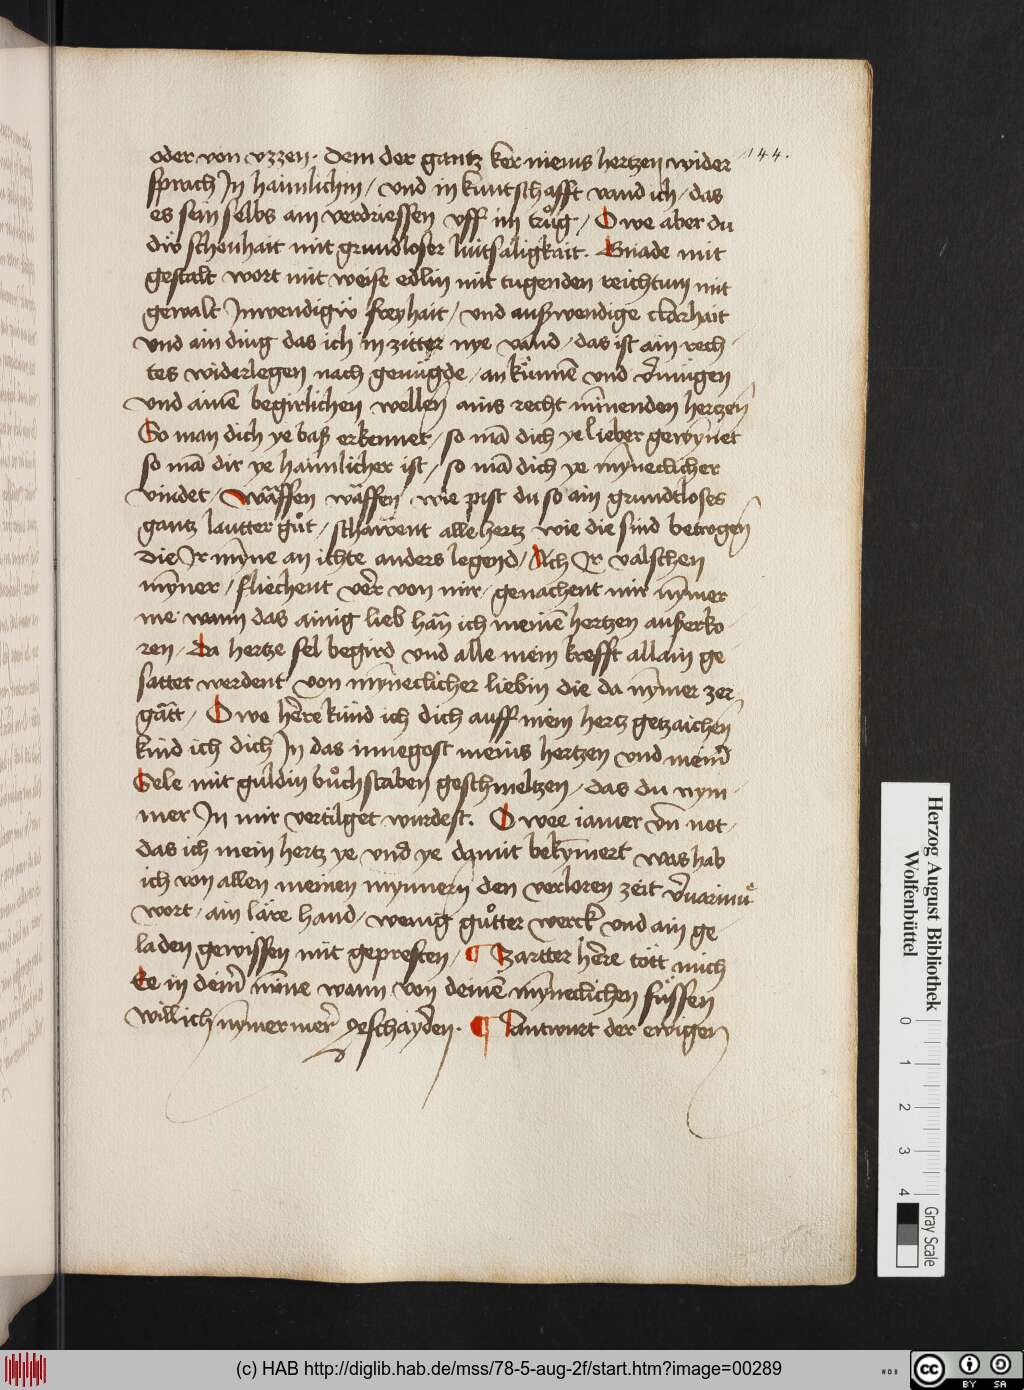 oder von vzzen. Dem der gantz ker meins hertzen wider
144.
sprach Jn haimlichin / vnd in kuntschafft vand ich / das
es sein selbs am verdriessen vff im trůg / O we aber du
diẅ schonhait mit grundloser lüitsaligkait. Gnade mit
gestalt wort mit weise edlin mit tugenden reichtum mit
gewalt Jnwendigiẅ freyhait / vnd außwendige clarhait
vnd ain ding das ich in zitter nye vand / das ist ain rech-
tes widerlegen nach genuͤgde / an kuͤnnē vnd v̄muͤgen
vnd ainē begirlichen wellen ains recht mīnenden hertzen
So man dich ye baß erkennet / so mā dich ye lieber gewȳnet
so mā dir ye haimlicher ist / so mā dich ye mȳneclicher
vindet / Wäffen wäffen wie pist du so ain grundtloses
gantz lautter gůt / schawent alle hertz wie die sind betrogen
Die Jr mȳne an ichte anders legend / Ach Jr valschen
mȳner / fliechent ver̄ von mir / genachent mir nȳmer
me wann das ainig lieb han ich meinē hertzen außerko-
ren / Da hertze sel begird vnd alle mein krefft allain ge
sattet werdent von mȳneclicher liebin die da nȳmer zer-
gātt / O we her̄e künd ich dich auff mein hertz getzaichen
kind ich dich Jn das innegost meins hertzen vnd mein̄
Sele mit guldin bůchstaben geschmeltzen / das du nym-
mer Jn mir vertilget wurdest. O wee iamer vn̄ not /
das ich mein hertz ye vnd ye damit bekȳmert was hab
ich von allen meinen mynnern den verloren zeit
wort / ain läre hand / wenig gůtter werck vnd ain ge
laden gewissen mit gepresten / ¶ Zartter her̄e tött mich
Ee in dein̄ mīne wann von deinē mȳneclichen füssen
will ich nȳmer mer̄ geschayden. ¶ Antwurt der ewigen
Herzog August Bibliothek
Wolfenbüttel
0 1 2 3 4
Gray Scale
(c) HAB http://diglib.hab.de/mss/78-5-aug-2f/start.htm?image=00289
WDB
cc BY SA